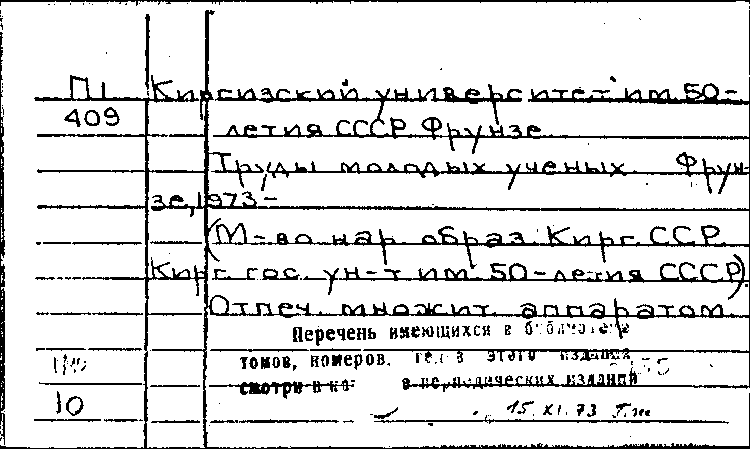 П1 Киргизский университет им. 50-
409 летия СССР. Фрунзе.
Труды молодых ученых. Фрун-
зе, 1973-
(М-во нар. образ. Кирг. ССР.
Кирг. гос. ун-т им. 50-летия СССР).
Отпеч. множит. аппаратом.
Перечень имеющихся в библиотеке
томов, номеров, этого издания
смотри в периодических изданий
10
15.XI.73